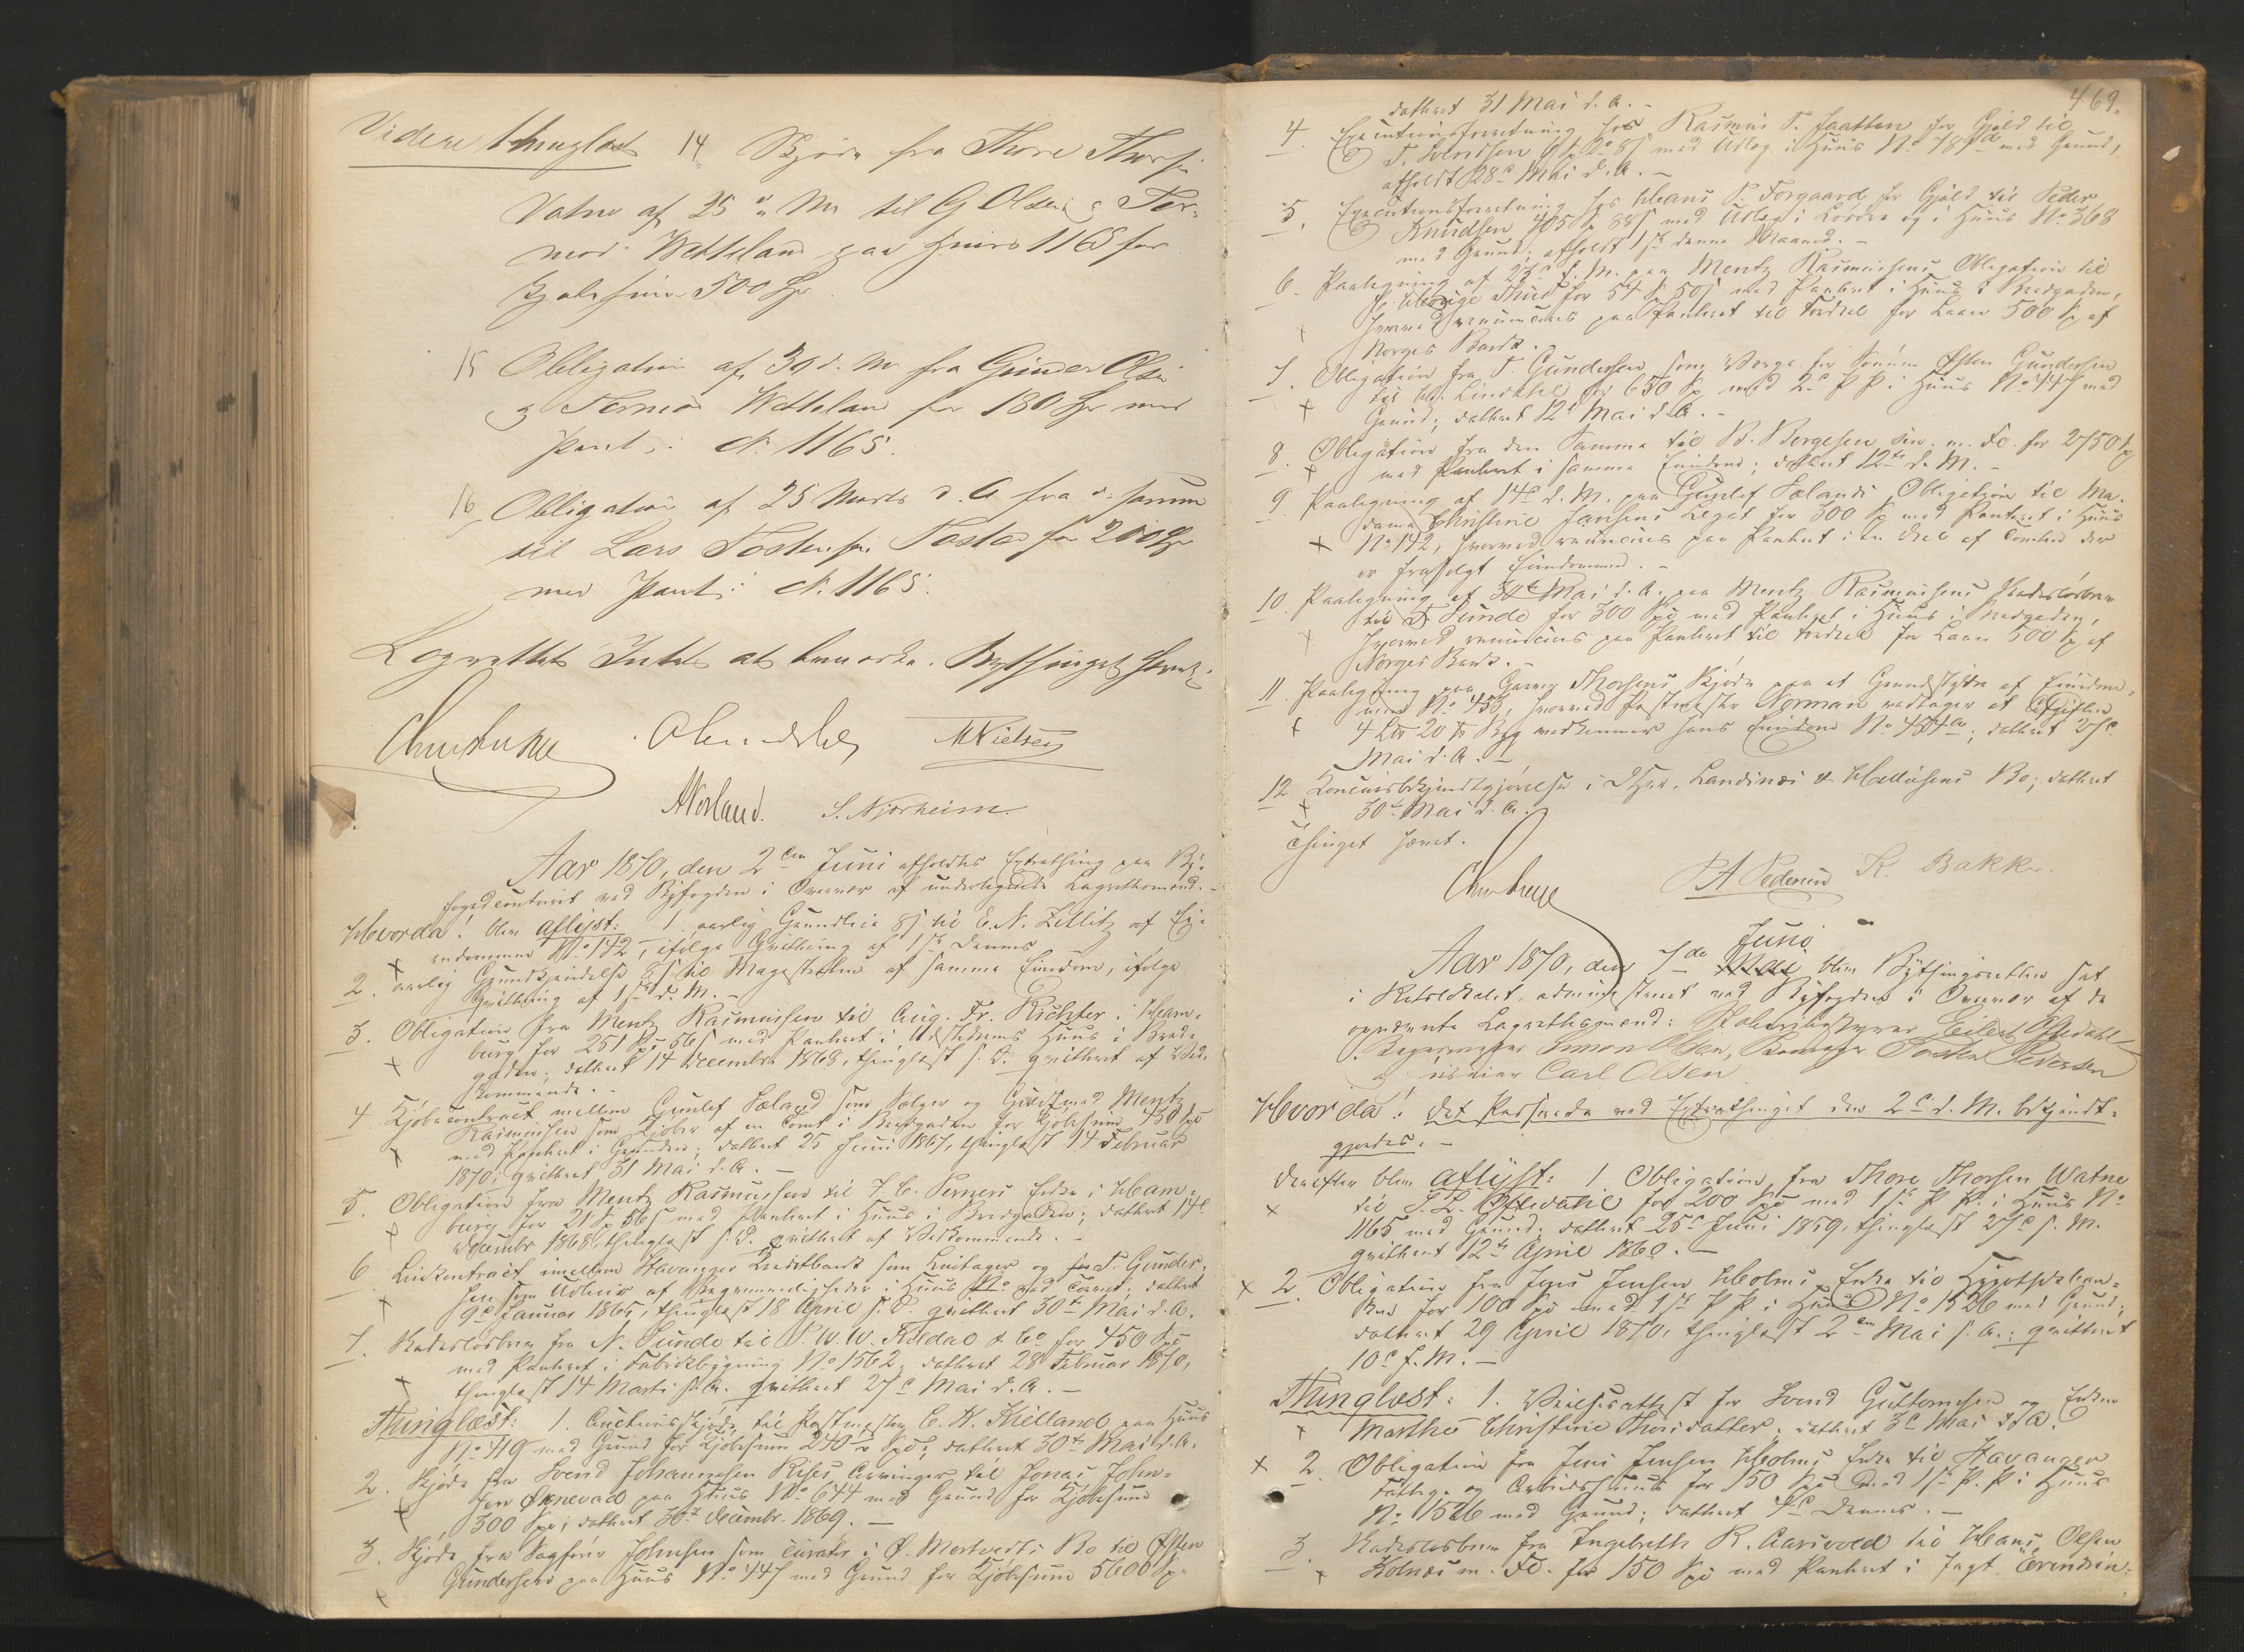 Videre thinglæst 14 Skjøde fra Thore Thors.
Vatne af 25 d. M. til G Olsen og Tor-
mod Wetteland paa Huus 1165 for
Kjøbesum 500 Sp
15 Obligation af 30 d. M. fra Gunder Olsen
og Tormod Wetteland for 180 Sp med
Pant i N. 1165.
16 Obligation af 25 Marts d. A. fra samme
til Lars Tostensen Tastad for 200 Sp
med Pant i N. 1165.
Lagrettet Intet at bemærke. Bythinget hævet.
MNielsen
S. Njærheim
Aar 1870, den 2den Juni afholdtes Extrathing paa By-
fogedcontoiret ved Byfogden i Overvær af undertegnede Lagrettemænd.
Hvorda! blev aflyst: 1. aarlig Grundleie til C. N. Zetlitz af Ei-
endommen No 142, ifølge Qvittering af 1ste dennes
2. aarlig Grundkjendelse til Magistraten af samme Eiendom, ifølge
Qvittering af 1ste d. M. -
3. Obligation fra Mentz Rasmussen til Aug. Fr. Richter i Ham-
burg for 251 Spd 56 s med Panteret i Udstederens Huus i Bred-
gaden; dateret 14 December 1868, thinglæst s. D. qvitteret af Ved-
kommende.
4. Kjøbecontract mellem Gunlef Sæland som Sælger og Mentz
Rasmussen som Kjøber af en Tomt i Bredgaden for Kjøbesum 430 Spd
med Panteret i Grunden; dateret 25 Juni 1867, thinglæst 14 Februar
1870; qvitteret 31 Mai d. A. -
5. Obligation fra Mentz Rasmussen til Enke i Ham-
burg for 21 Sp 56 s med Panteret i Huus i Bredgaden; dateret 14de
December 1868, thinglæst s. D. qvitteret af Vedkommende. -
6. Leiekontract imellem Stavanger Creditbank som Leietager og T. Gunder-
sen som Udleier af Beqvemmeligheder i Huus No ved Torvet; dateret
9de Januar 1865, thinglæst 18 April s. A. qvitteret 30te Mai d. A.
7. Skadesløsbrev fra N. Sunde til P. W. W. Kildal & Co for 450 Spd
med Panteret i Fabrikbygning No 1562; dateret 28 Februar 1870,
thinglæst 14 Marts s. A. qvitteret 27de Mai d. A. -
Thinglæst: 1. Auctionsskjøde til Postmester C. K. Kielland paa Huus
No 419 med Grund for Kjøbesum 240 Spd; dateret 30te Mai d. A.
2. Skjøde fra Svend Johannesen Riises Arvinger til Jonas John-
sen Øknevad paa Huus No 644 med Grund for Kjøbesum
300 Spd; dateret 30te Decembr. 1869. -
3. Skjøde fra Sagfører Johnsen som Curator i Ø. Mostvedts Bo til Østen
Gundersen paa Huus No 447 med Grund for Kjøbesum 5600 Sp.
469.
dateret 31 Mai d. A. -
4. Executionsforretning hos Rasmus T. Jaatten for Gjeld til
T. Svendsen med Udlæg i Huus No 789a med Grund,
afholdt 28de Mai d. A. -
5. Executionsforretning hos Hans P. Torgaard for Gjæld til Peder
Knudsen 405 Sp 88 s med Udlæg i Løsøre og i Huus No 368
med Grund; afholdt 1ste denne Maaned. -
6. Paategning af d. M. paa Mentz Rasmussens Obligation til
for 54 Sp 50 s med Panteret i Huus i Bredgaden,
hvorved renunceres paa Panteret til Fordeel for Laan 500 Sp af
Norges Bank.
7. Obligation fra T. Gundersen som Værge for Sønnen Østen Gundersen
til Lindahl for 650 Sp med 2de P P i Huus No 447 med
Grund; dateret 12te Mai d. A. -
8. Obligation fra den Samme til B. Børgesen sen. m. Fl. for 2750 Sp
med Panteret i samme Eiendom; dateret 12te d. M. -
9. Paategning af 14de d. M. paa Gunlef Sælands Obligation til Ma-
dame Christine Jansens Legat for 300 Sp med Panteret i Huus
No 142, hvorved renunceres paa Panteret i en Deel af Tomten der
er frasolgt Eiendommen. -
10. Paategning af 30te Mai d. A. paa Mentz Rasmussens Skadesløsbrev
til Sunde for 300 Spd med Panteret i Huus i Bredgaden,
hvorved renunceres paa Panteret til Fordeel for Laan 500 Sp af
Norges Bank. -
11. Paategning paa Thorsens Skjøde paa et Grundstykke af Eiendom-
men No 453, hvorved Postmester Norman vedtager at Afgiften
vedkommer hans Eiendom No 454a; dateret 27de
Mai d. A. -
12. Concursbekjendtgjørelse i Landsnæs & Halvorsens Bo; dateret
30te Mai d. A.
Thinget hævet.
P A Pedersen K. Bakke.
Juni
Aar 1870, den 7de Mai blev Bythingsretten sat
i Retslokalet, administreret ved Byfogden i Overvær af de
opnævnte Lagrettesmænd: Eilert Oftedahl
Bagermester Simon Olsen, Torsten Pedersen
og Carl Olsen
Hvorda! det Passerede ved Extrathinget den 2de d. M. bekjendt-
gjordes. -
Derefter blev aflyst: 1. Obligation fra Thore Thorsen Watne
til S. L. Oftedahl for 200 Spd med 1ste P P. i Huus No
1165 med Grund; dateret 25de Juni 1859, thinglæst 27de s. M.
qvitteret 12te April 1860. -
2. Obligation fra Jens Jensen Holms Enke til Hypothekban-
ken for 100 Spd med 1ste P P i Huus No 1526 med Grund;
dateret 29 April 1870, thinglæst 2den Mai s. A.; qvitteret
10de f. M. -
Thinglæst: 1. Vielsesattest for Svend Guttormsen og Enken
Marthe Christine Thorsdatter; dateret 3de Mai d A.
2. Obligation fra Jens Jensen Holms Enke til Stavanger
Fattige og Arbeidshuus for 150 Spd med 1ste P. P. i Huus
No 1526 med Grund; dateret 4de dennes. -
3. Skadesløsbrev fra Ingebreth R. Aarsvold til Hans Olsen
Kolnæs m. Fl. for 150 Spd med Panteret i Jagt